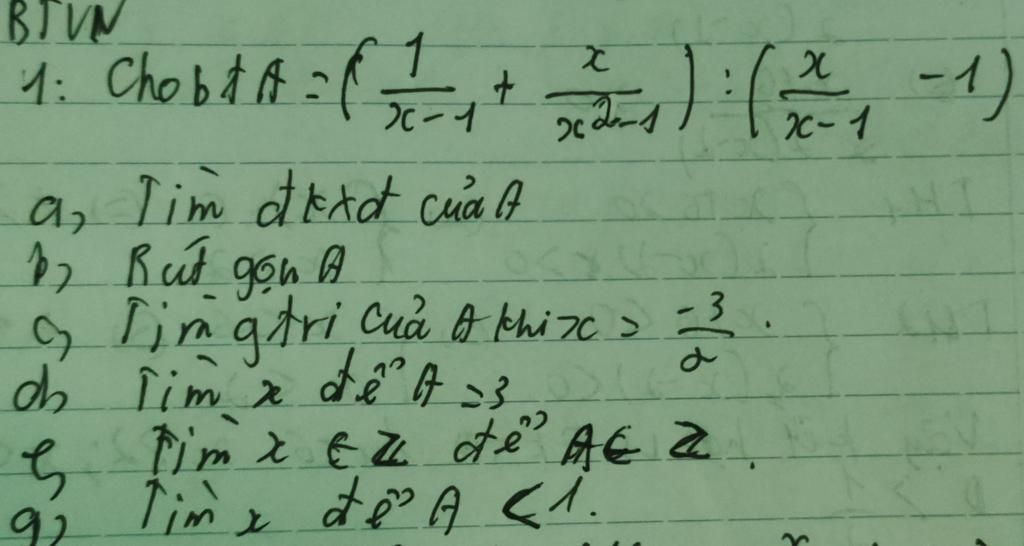 BTVN
1: Cho bt A = ( 1/(x-1) + x/(x²-1) ) : ( x/(x-1) - 1 )
a, Tìm đkxđ của A
b, Rút gọn A
c, Tìm g trị của A khi x = -3/2.
d, Tìm x để A = 3
e, Tìm x ∈ Z để A ∈ Z.
g, Tìm x để A < 1.